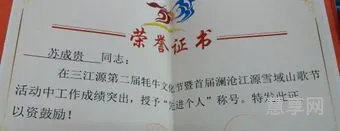 荣誉证书
苏成贵 同志：
在三江源第二届牦牛文化节暨首届澜沧江源雪域山歌节
活动中工作成绩突出，授予“先进个人”称号。特发此证，
以资鼓励！
慧享网